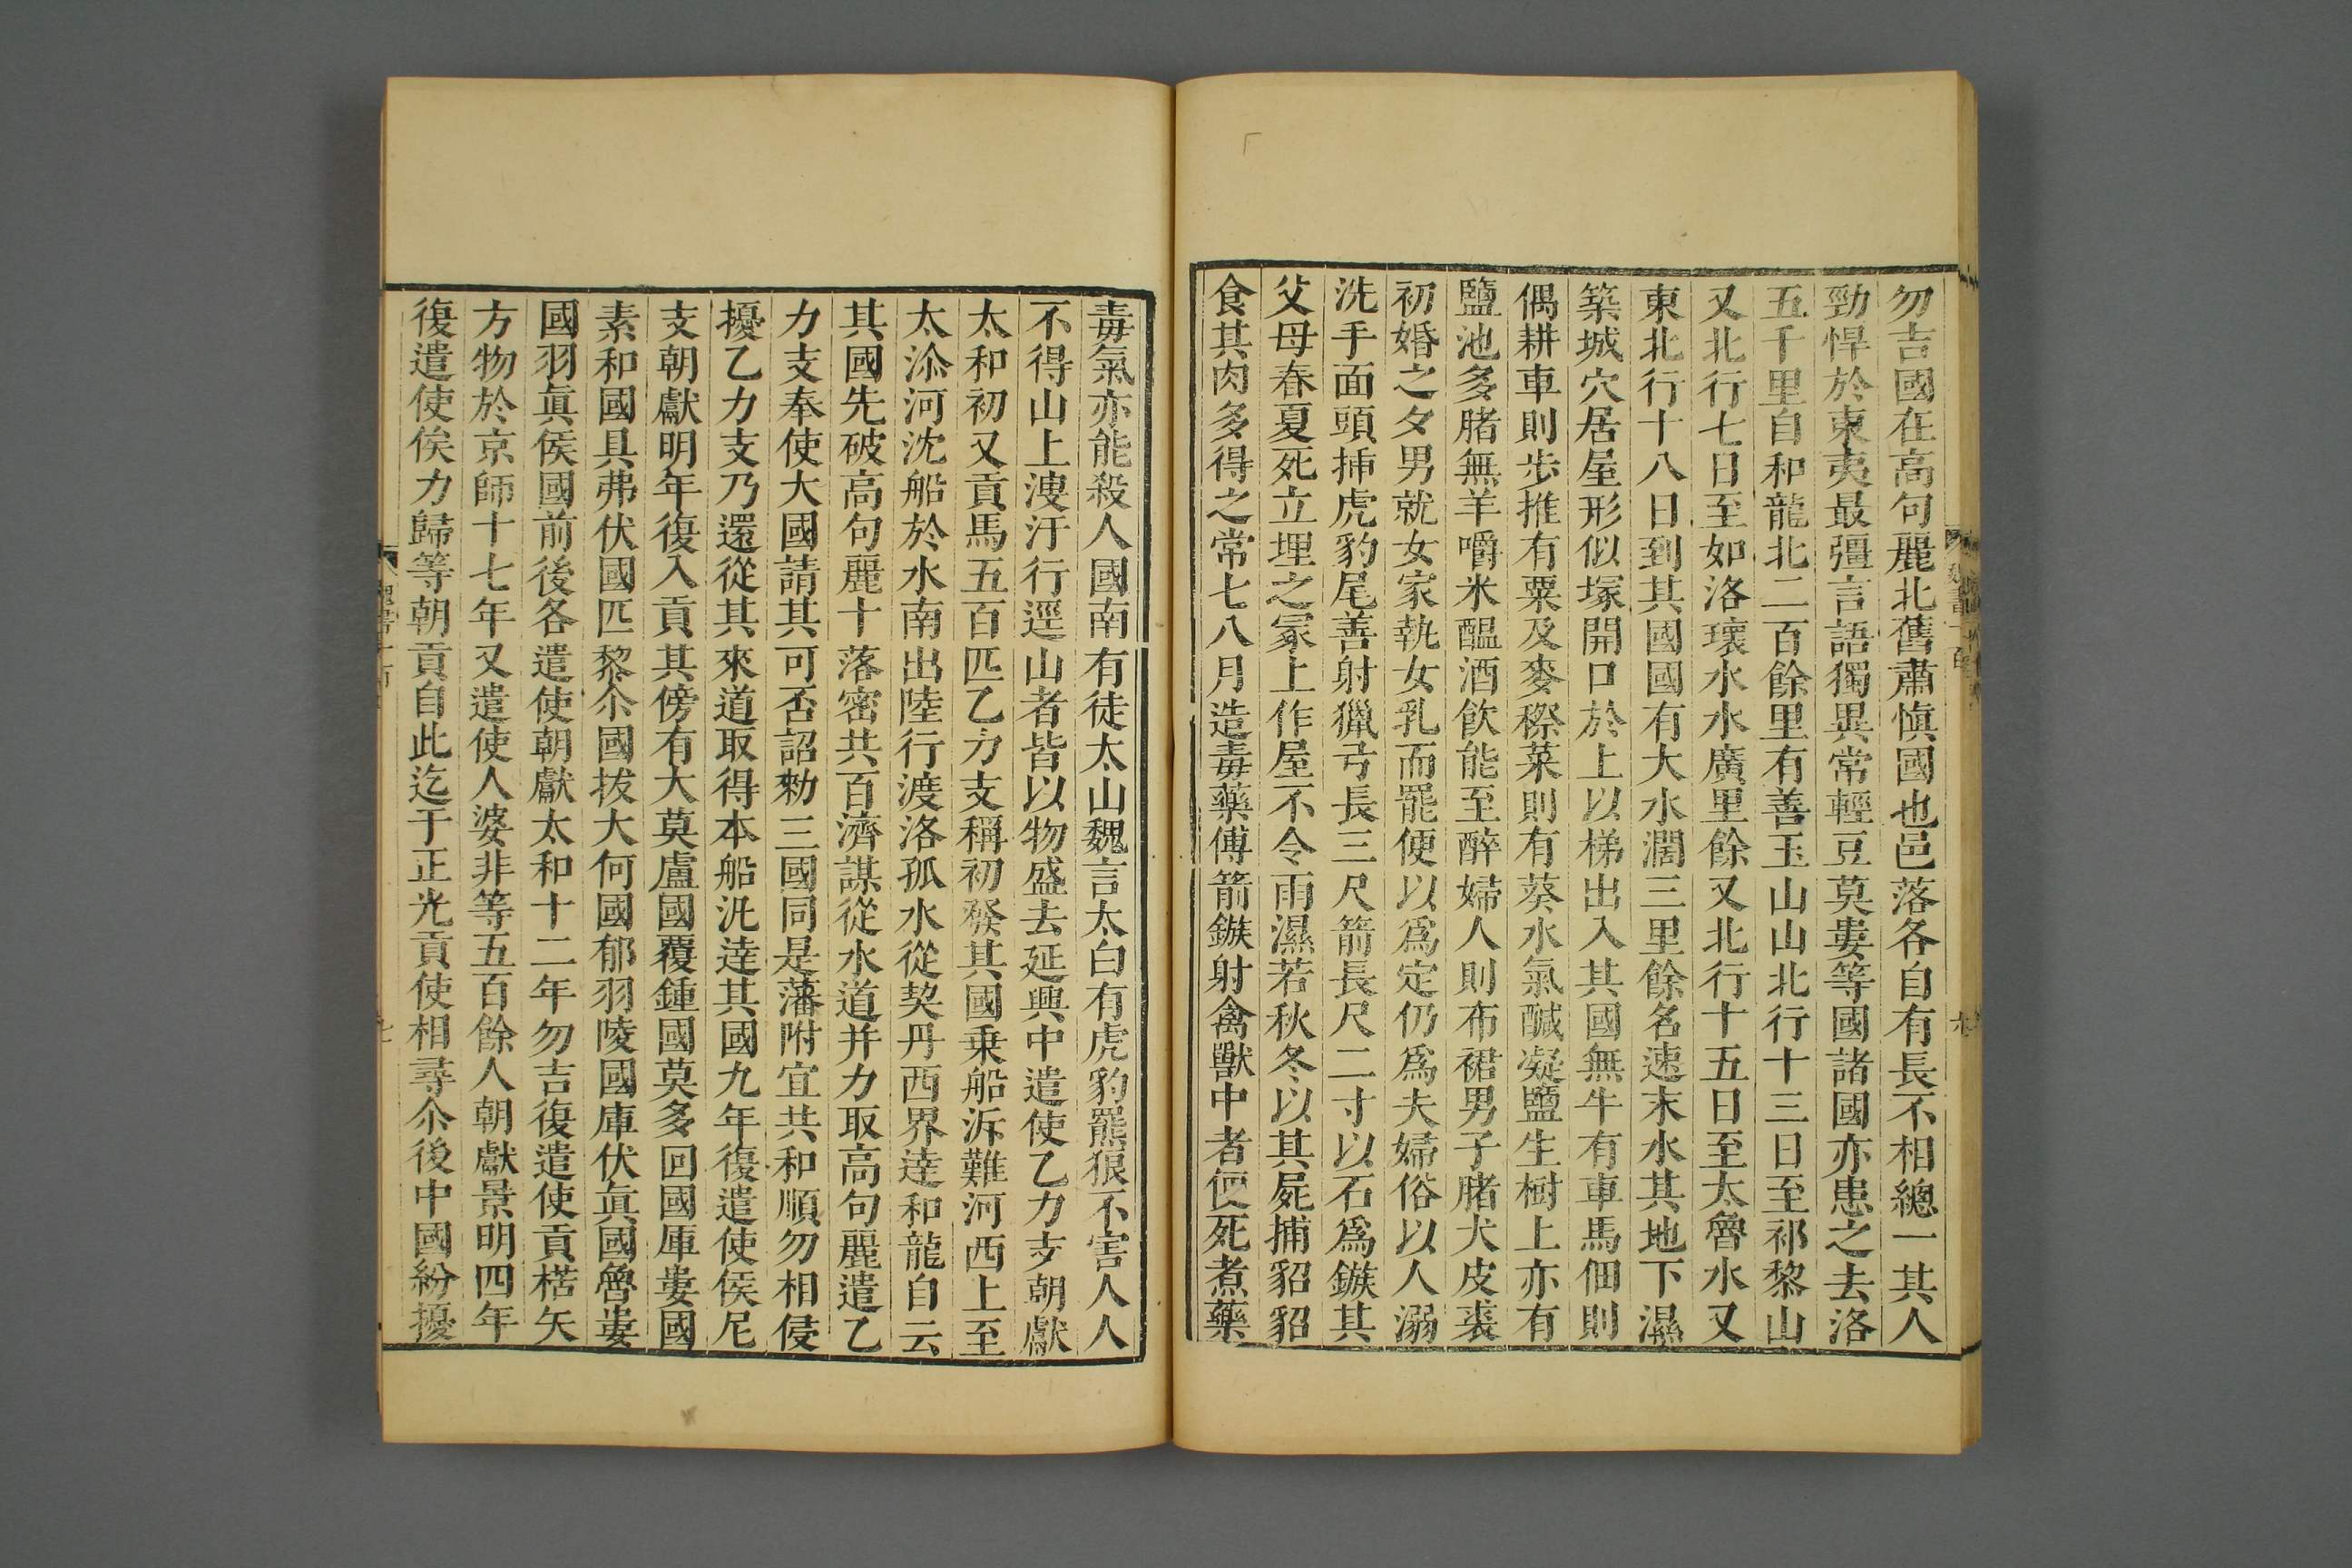 勿吉國在高句麗北舊肅愼國也邑落各自有長不相總一其人
勁悍於東夷最彊言語獨異常輕豆莫婁等國諸國亦患之去洛
五千里自和龍北二百餘里有善玉山山北行十三日至祁黎山
又北行七日至如洛瓌水水廣里餘又北行十五日至太魯水又
東北行十八日到其國國有大水濶三里餘名速末水其地下濕
築城穴居屋形似塚開口於上以梯出入其國無牛有車馬佃則
偶耕車則歩推有粟及麥穄菜則有葵水氣醎凝鹽生樹上亦有
鹽池多豬無羊嚼米醖酒飲能至醉婦人則布裙男子豬犬皮裘
初婚之夕男就女家執女乳而罷便以爲定仍爲夫婦俗以人溺
洗手面頭揷虎豹尾善射獵弓長三尺箭長尺二寸以石爲鏃其
父母春夏死立埋之冢上作屋不令雨濕若秋冬以其屍捕貂貂
食其肉多得之常七八月造毒藥傅箭鏃射禽獸中者便死煮藥
毒氣亦能殺人國南有徒太山魏言太白有虎豹羆狼不害人人
不得山上溲汙行逕山者皆以物盛去延興中遣使乙力支朝獻
太和初又貢馬五百匹乙力支稱初發其國乗船泝難河西上至
太沵河沈船於水南出陸行渡洛孤水從契丹西界達和龍自云
其國先破高句麗十落密共百濟謀從水道并力取高句麗遣乙
力支奉使大國請其可否詔勑三國同是藩附宜共和順勿相侵
擾乙力支乃還從其來道取得本船汎達其國九年復遣使侯尼
支朝獻明年復入貢其傍有大莫盧國覆鍾國莫多回國庫婁國
素和國具弗伏國匹黎尒國拔大何國郁羽陵國庫伏眞國魯婁
國羽眞侯國前後各遣使朝獻太和十二年勿吉復遣使貢楛矢
方物於京師十七年又遣使人婆非等五百餘人朝獻景明四年
復遣使俟力歸等朝貢自此迄于正光貢使相尋尒後中國紛擾